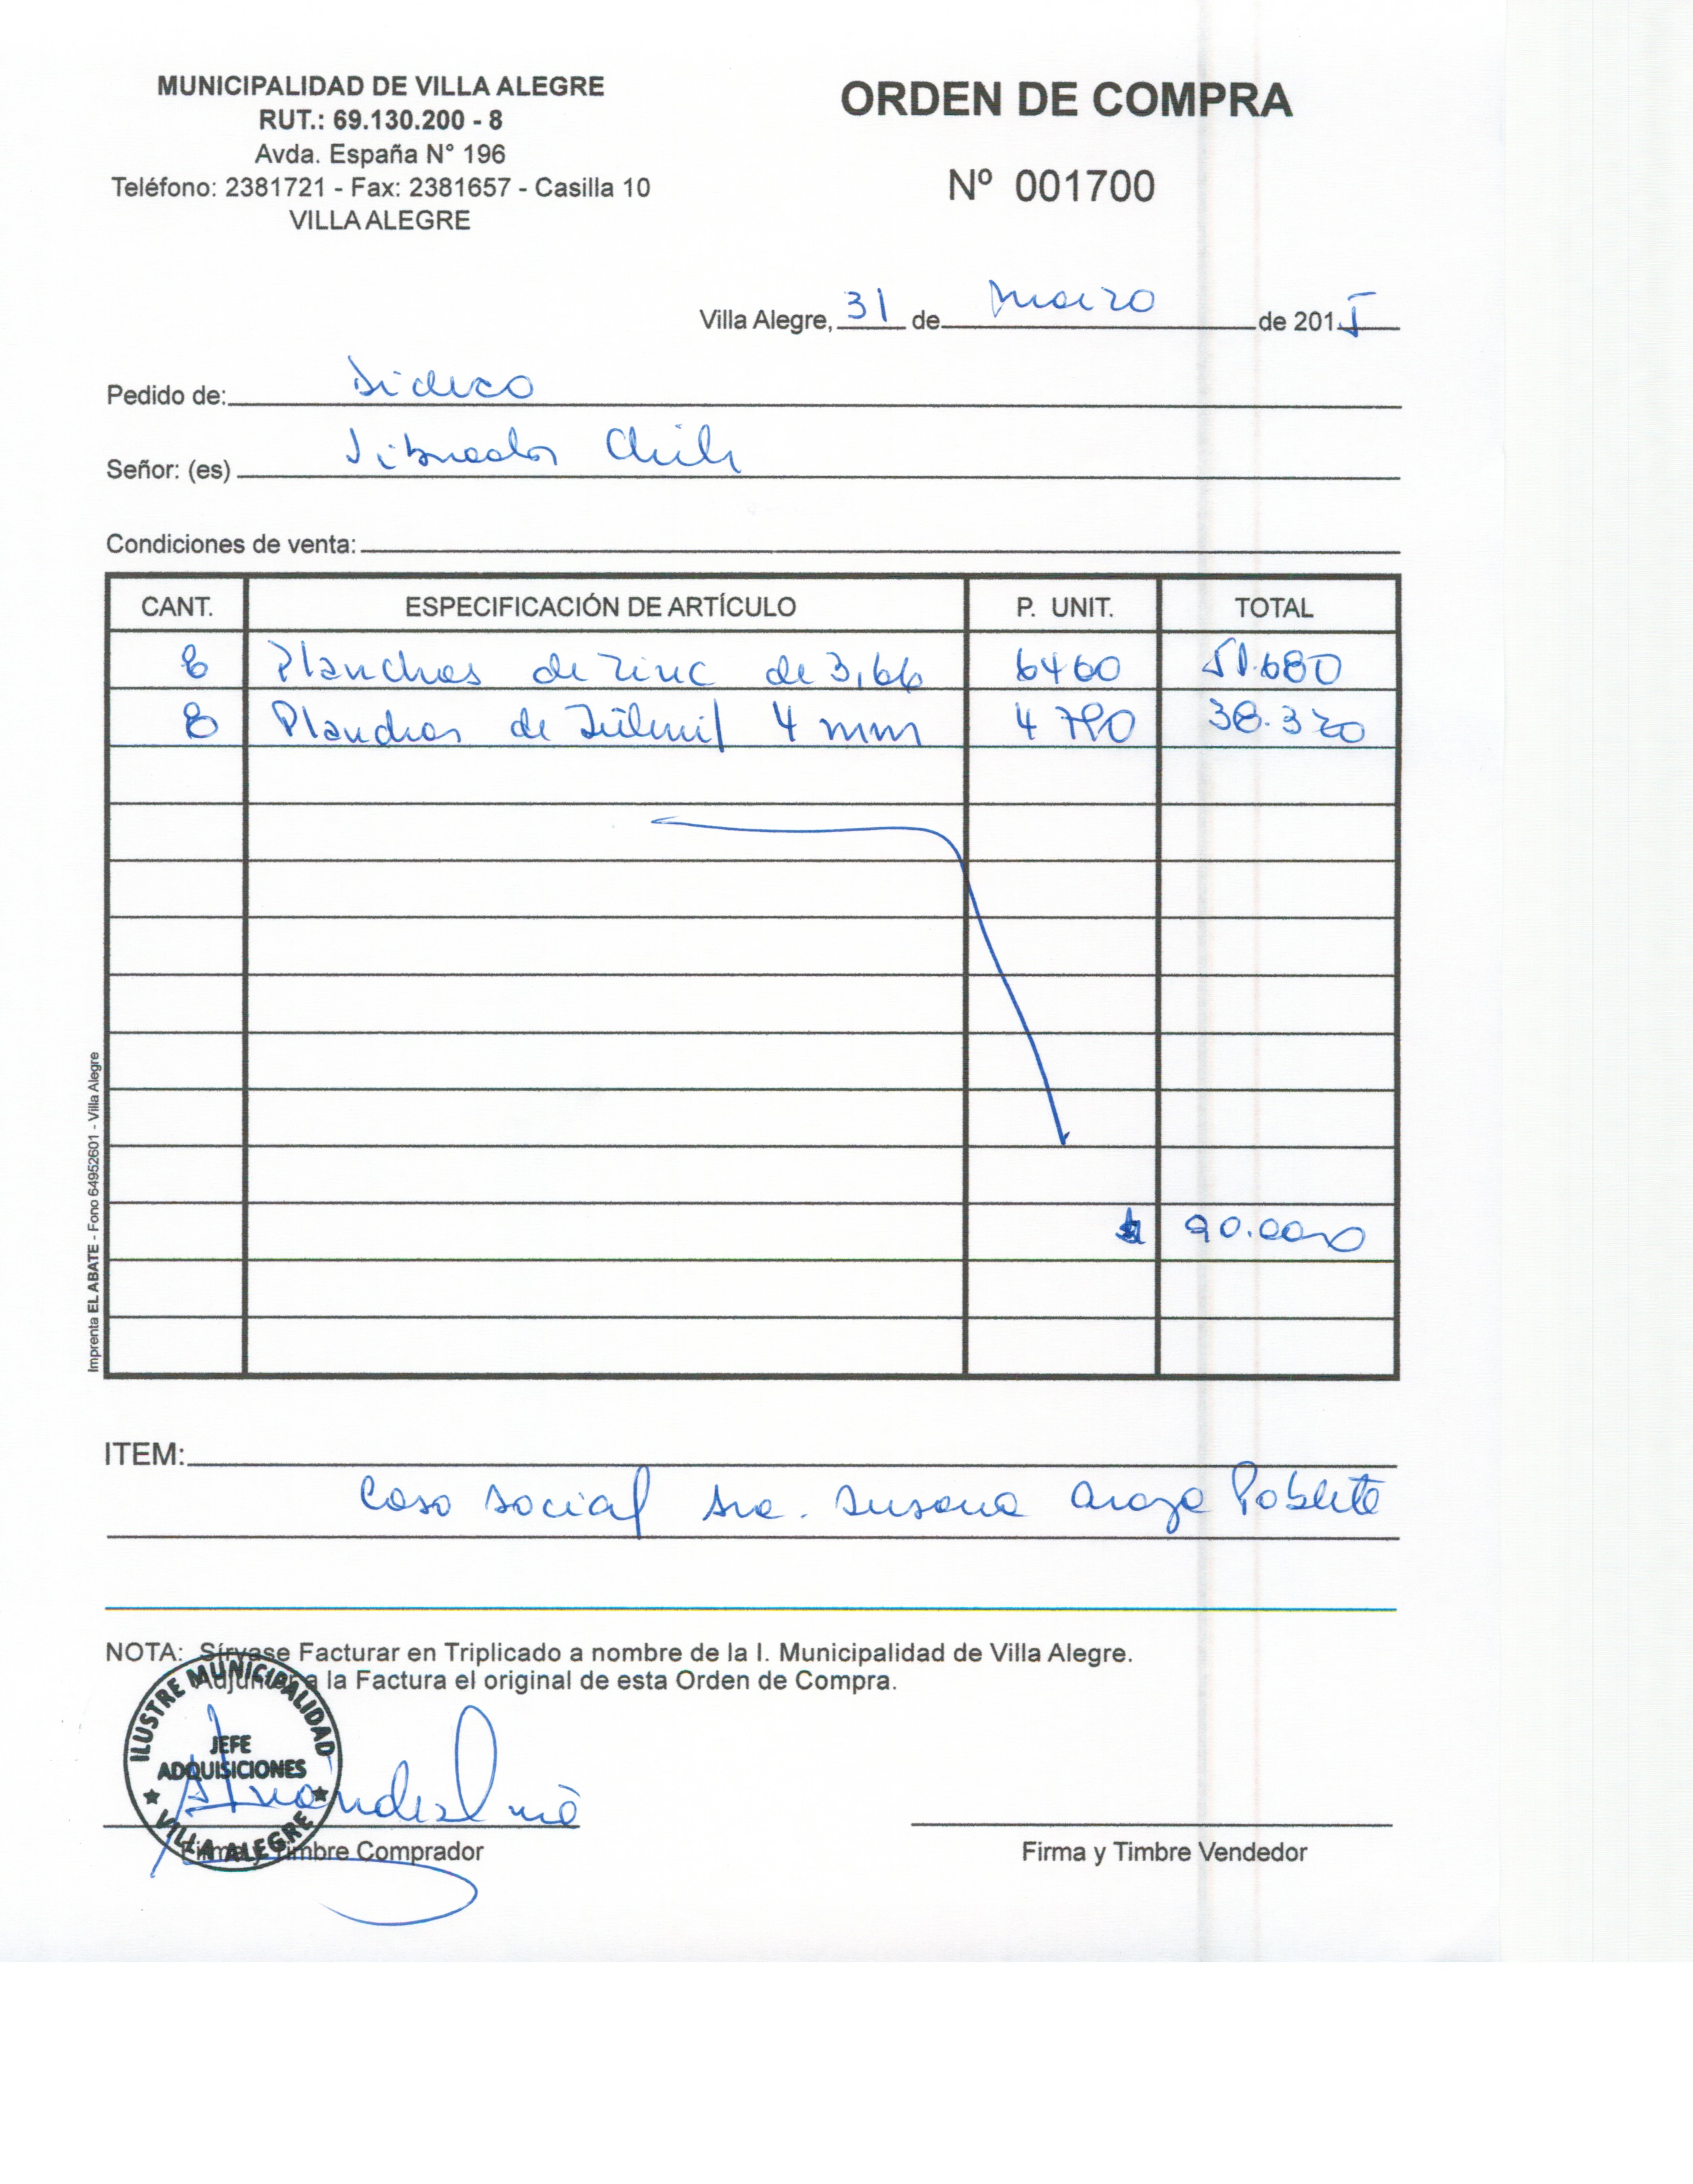 MUNICIPALIDAD DE VILLA ALEGRE
RUT.: 69.130.200 - 8
Avda. España N° 196
Teléfono: 2381721 - Fax: 2381657 - Casilla 10
VILLA ALEGRE
ORDEN DE COMPRA
Nº 001700
Villa Alegre, 31 de Marzo de 2015
Pedido de: Dideco
Señor: (es) Chile
Condiciones de venta:
CANT. ESPECIFICACIÓN DE ARTÍCULO P. UNIT. TOTAL
8 Planchas de Zinc de 3,66 6460 51.680
8 Planchas de 4 mm 4790 38.320
$ 90.000
ITEM:
Caso social Sra. Susana Araya Poblete
NOTA: Sírvase Facturar en Triplicado a nombre de la I. Municipalidad de Villa Alegre.
Adjuntar a la Factura el original de esta Orden de Compra.
ILUSTRE MUNICIPALIDAD
JEFE
ADQUISICIONES
VILLA ALEGRE
Firma y Timbre Comprador
Firma y Timbre Vendedor
Imprenta EL ABATE - Fono 64952601 - Villa Alegre